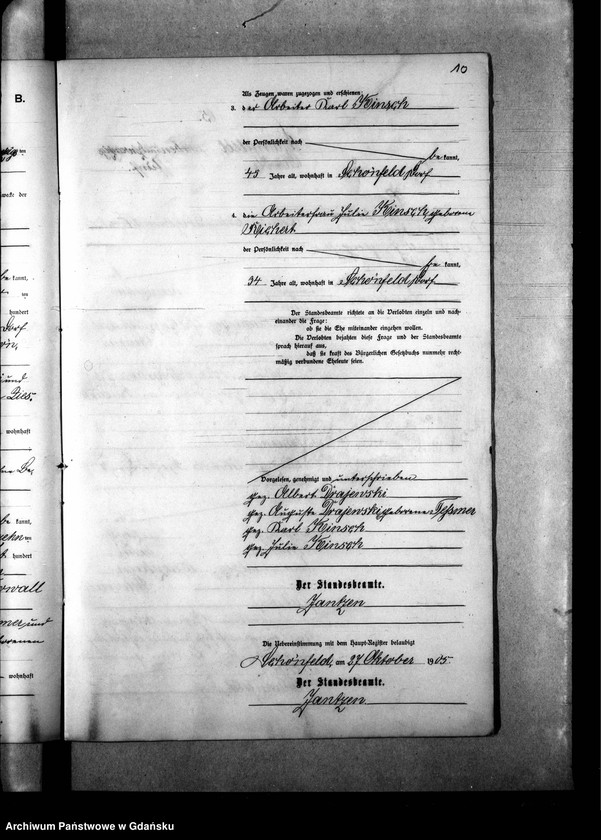 10
B.
Als Zeugen waren zugezogen und erschienen:
3. der Arbeiter Karl Kinsch
der Persönlichkeit nach
be kannt,
45 Jahre alt, wohnhaft in Schönfeld, Dorf
4. die Arbeiterfrau Julie Kinsch, geborene
Reichert
der Persönlichkeit nach
be kannt,
34 Jahre alt, wohnhaft in Schönfeld, Dorf
Der Standesbeamte richtete an die Verlobten einzeln und nach-
einander die Frage:
ob sie die Ehe miteinander eingehen wollen.
Die Verlobten bejahten diese Frage und der Standesbeamte
sprach hierauf aus,
daß sie kraft des Bürgerlichen Gesetzbuchs nunmehr recht-
mäßig verbundene Eheleute seien.
Vorgelesen, genehmigt und unterschrieben
gez. Albert Drajewski
gez. Auguste Drajewski geborene Tessmer
gez. Karl Kinsch
gez. Julie Kinsch
Der Standesbeamte.
Jantzen
Die Uebereinstimmung mit dem Haupt-Register beglaubigt
Schönfeld, am 27 Oktober 1905.
Der Standesbeamte.
Jantzen
kannt,
hundert
Dorf
und
wohnhaft
kannt,
hundert
wohnhaft
Archiwum Państwowe w Gdańsku